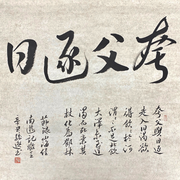 夸父逐日
夸父與日逐
走入日渴欲
得飲飲於河
渭
不足北飲
大澤未至道
渴而死棄其
杖化為鄧林
節錄山海經